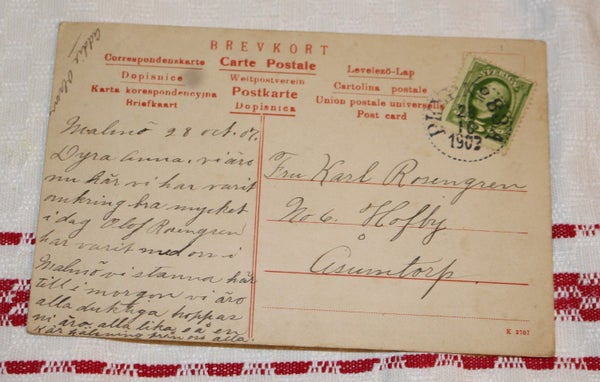 Addie Olson
BREVKORT
Correspondenskarte
Carte Postale
Levelező-Lap
Dopisnice
Weltpostverein
Cartolina postale
Karta korespondencyjna
Postkarte
Union postale universelle
Briefkaart
Dopisnica
Post card
SVERIGE
28
10
1907
Malmö 28 oct. 07.
Dyra Anna, vi äro
nu här vi har varit
omkring bra mycket
i dag Olof Rosengren
har varit med om i
Malmö vi stanna här
till i morgon vi äro
alla duktiga hoppas
ni äro alla lika så en
kär hälsning från oss alla
Fru Karl Rosengren
No 6. Hofby
Åsumtorp.
K 2707